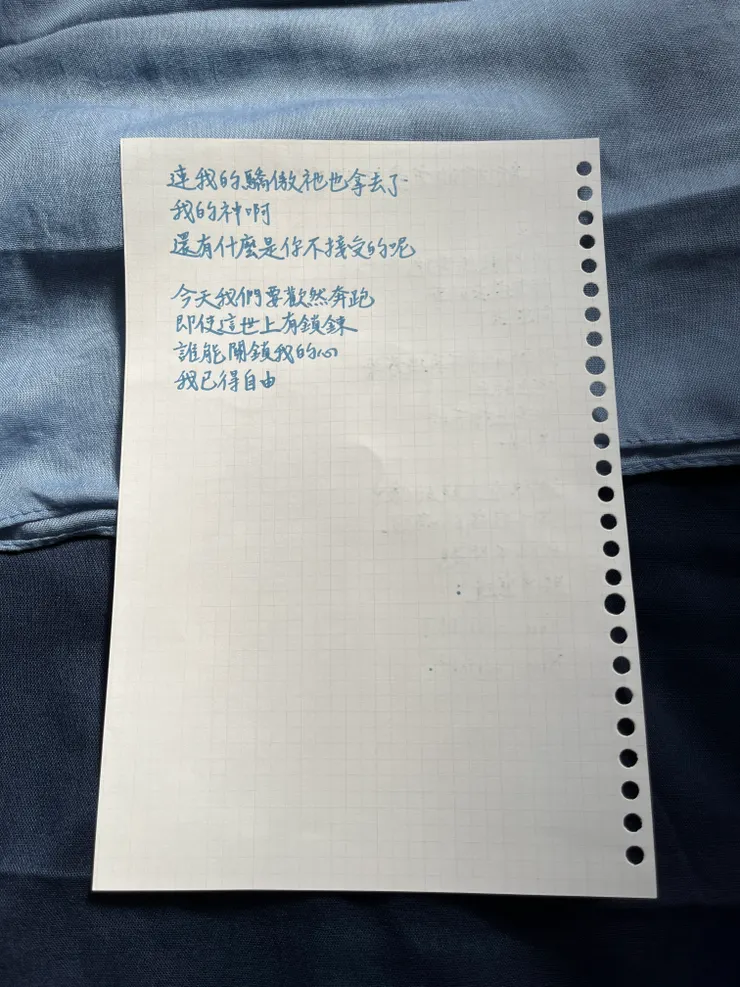 連我的驕傲祂也拿去了
我的神啊
還有什麼是你不接受的呢
今天我們要歡然奔跑
即使這世上有鎖鍊
誰能關鎖我的心
我已得自由